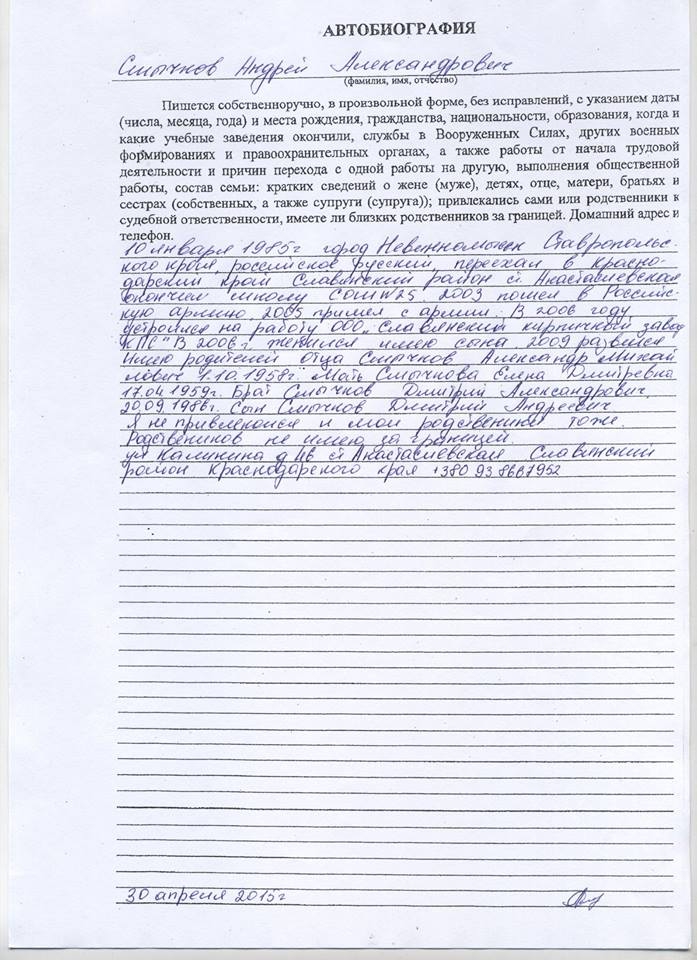 АВТОБИОГРАФИЯ
Смычков Андрей Александрович
(фамилия, имя, отчество)
Пишется собственноручно, в произвольной форме, без исправлений, с указанием даты
(числа, месяца, года) и места рождения, гражданства, национальности, образования, когда и
какие учебные заведения окончили, службы в Вооруженных Силах, других военных
формированиях и правоохранительных органах, а также работы от начала трудовой
деятельности и причин перехода с одной работы на другую, выполнения общественной
работы, состав семьи: кратких сведений о жене (муже), детях, отце, матери, братьях и
сестрах (собственных, а также супруги (супруга)); привлекались сами или родственники к
судебной ответственности, имеете ли близких родственников за границей. Домашний адрес и
телефон.
10 января 1985г город Невинномысск Ставрополь-
ского края, российское русский, переехал в Красно-
дарский край Славянский район ст. Анастасиевская
окончил школу СОШ№25. 2003 пошел в Россий-
скую армию. 2005 пришел с армии. В 2006 году
устроился на работу ООО. Славянский кирпичный завод
КПС" В 2006г. женился имею сына. 2009 развёлся
Имею родителей отца Смычков Александр Михай
лович 1.10.1958г Мать Смычкова Елена Дмитревна
17.04.1959г. Брат Смычков Дмитрий Александрович
20.09.1986г. Сын Смычков Дмитрий Андреевич
Я не привлекался и мои родственики тоже.
Родствеников не имею за границей.
ул Калинина д ст Анастасиевская Славянский
район Краснодарского края +380 93 8667952
30 апреля 2015г